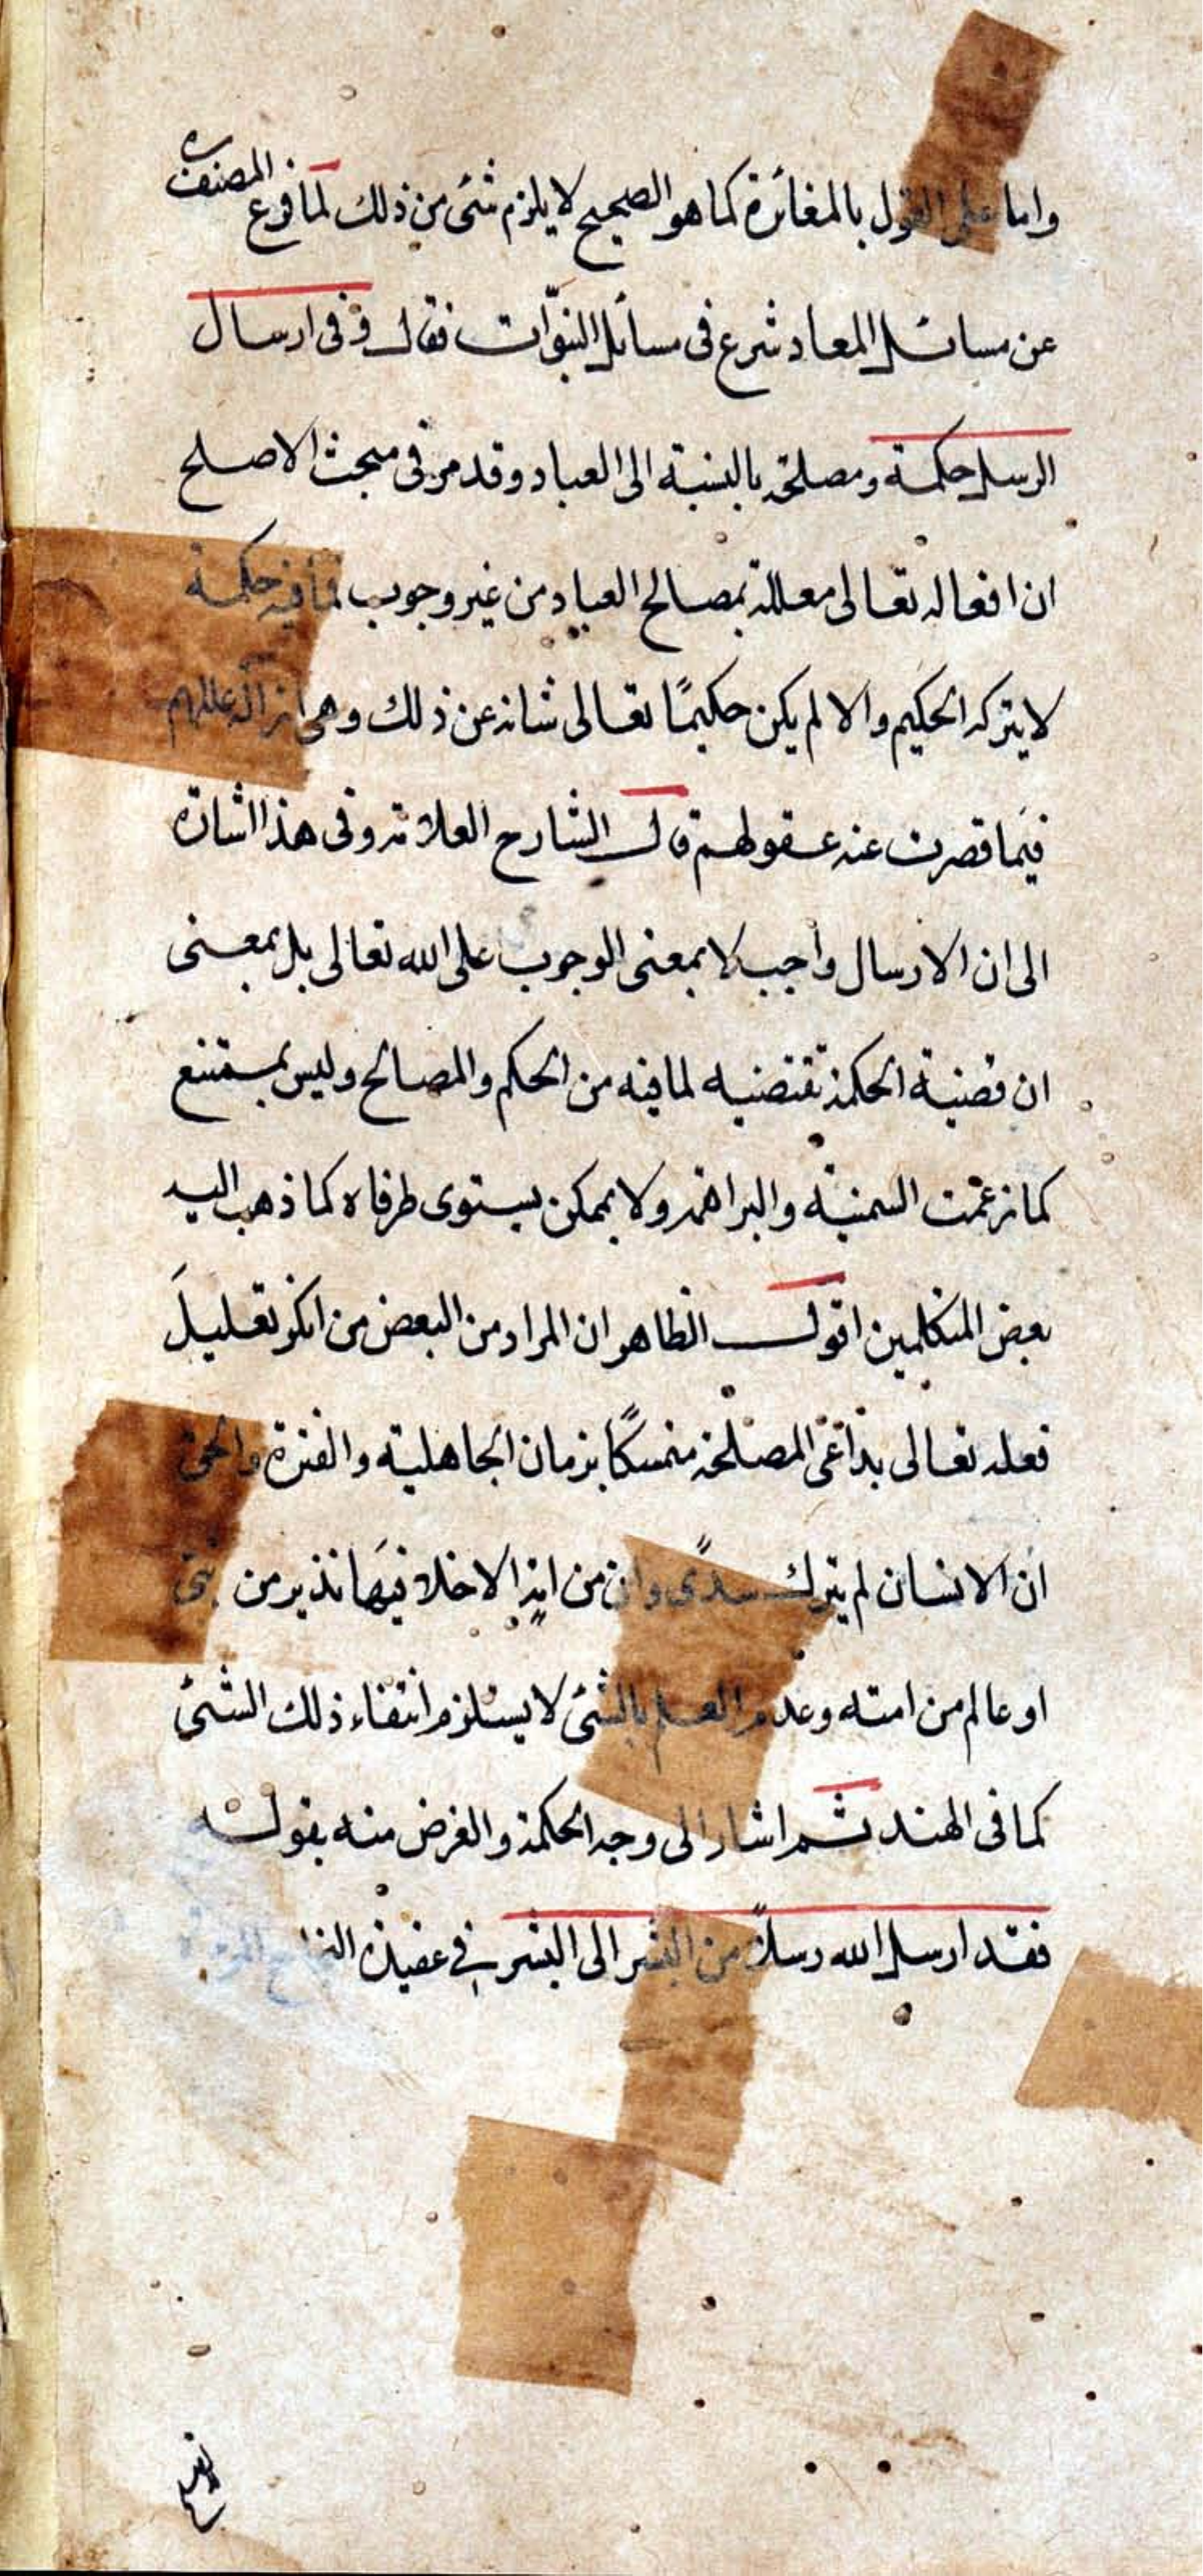 واما على القول بالمغائرة كما هو الصحيح لا يلزم شئ من ذلك لما فرغ المصنف ره
عن مسائل المعاد شرع فى مسائل النبوّات فقال و فى ارسال
الرسل حكمة ومصلحة بالنسبة الى العباد وقد مر فى مبحث الاصلح
ان افعاله تعالى معللة بمصالح العباد من غير وجوب فما فيه حكمة
لا يتركه الحكيم والا لم يكن حكيمًا تعالى شانه عن ذلك وهى ازالة عللهم
فيما قصرت عنه عقولهم قال الشارح العلامة وفى هذا اشارة
الى ان الارسال واجب لا بمعنى الوجوب على الله تعالى بل بمعنى
ان قضية الحكمة تقتضيه لما فيه من الحكم والمصالح وليس بممتنع
كما زعمت السمنية والبراهمة ولا بممكن يستوى طرفاه كما ذهب اليه
بعض المتكلمين اقول الظاهر ان المراد من البعض من انكر تعليل
فعله تعالى بداعى المصلحة متمسكًا بزمان الجاهلية والفترة والحق
ان الانسان لم يترك سدًى وان من امة الا خلا فيها نذير من نبى
او عالم من امته وعدم العلم بالشئ لا يستلزم انتفاء ذلك الشئ
كما فى الهند ثم اشار الى وجه الحكمة والغرض منه بقوله
فقد ارسل الله رسلاً من البشر الى البشر فى عقيدة